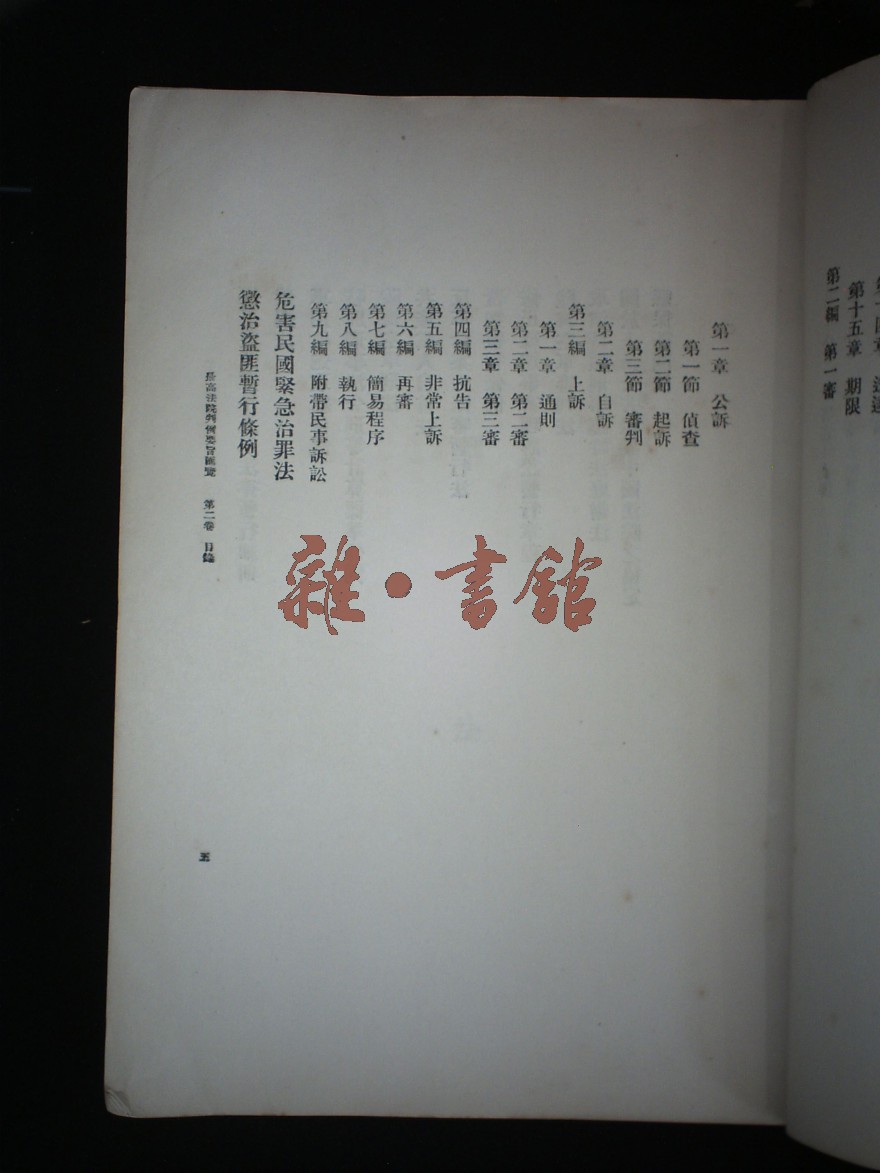 第十五章　期限
第二編　第一審
第一章　公訴
第一節　偵查
第二節　起訴
第三節　審判
第二章　自訴
第三編　上訴
第一章　通則
第二章　第二審
第三章　第三審
第四編　抗告
第五編　非常上訴
第六編　再審
第七編　簡易程序
第八編　執行
第九編　附帶民事訴訟
危害民國緊急治罪法
懲治盜匪暫行條例
最高法院判例要旨匯覽　第二卷　目錄
五
雜·書館